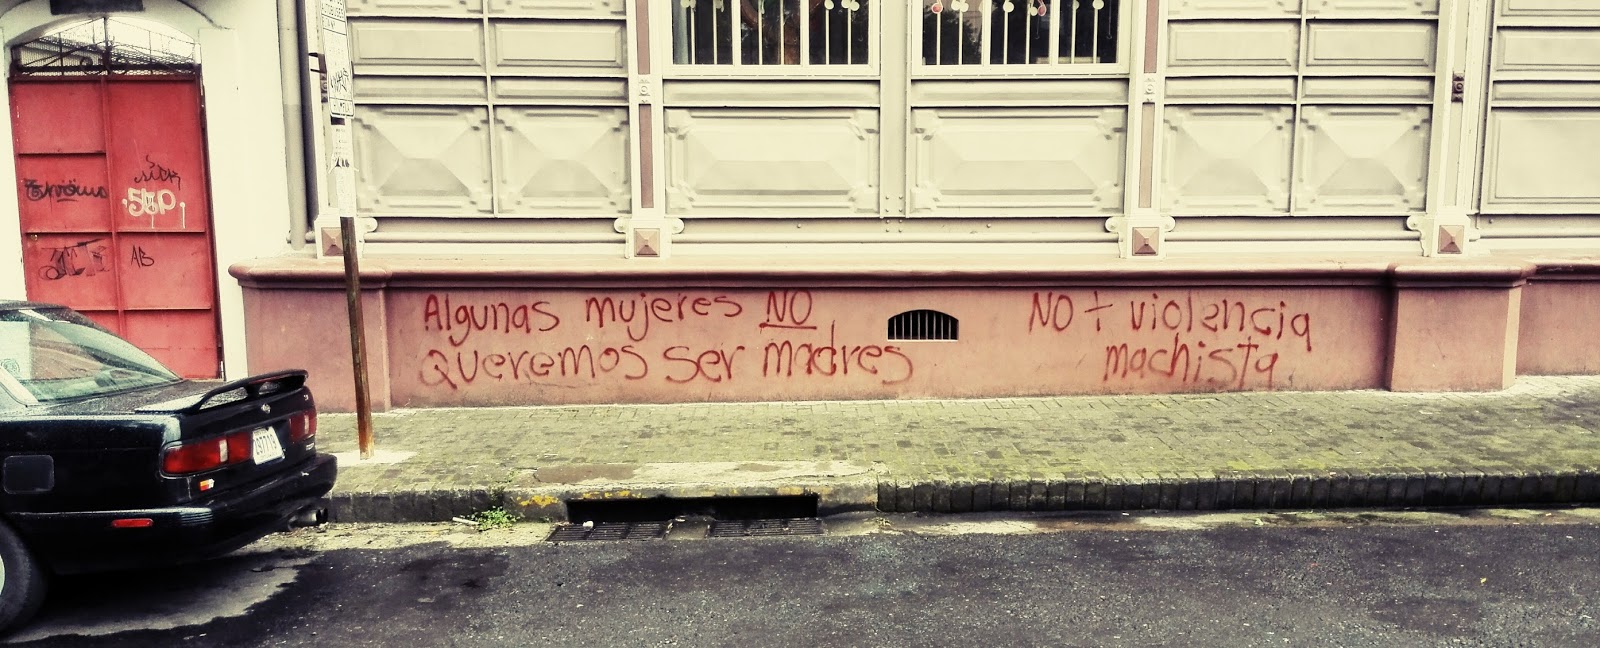 Algunas mujeres NO
queremos ser madres
NO + violencia
machista
SICK
AB
297719